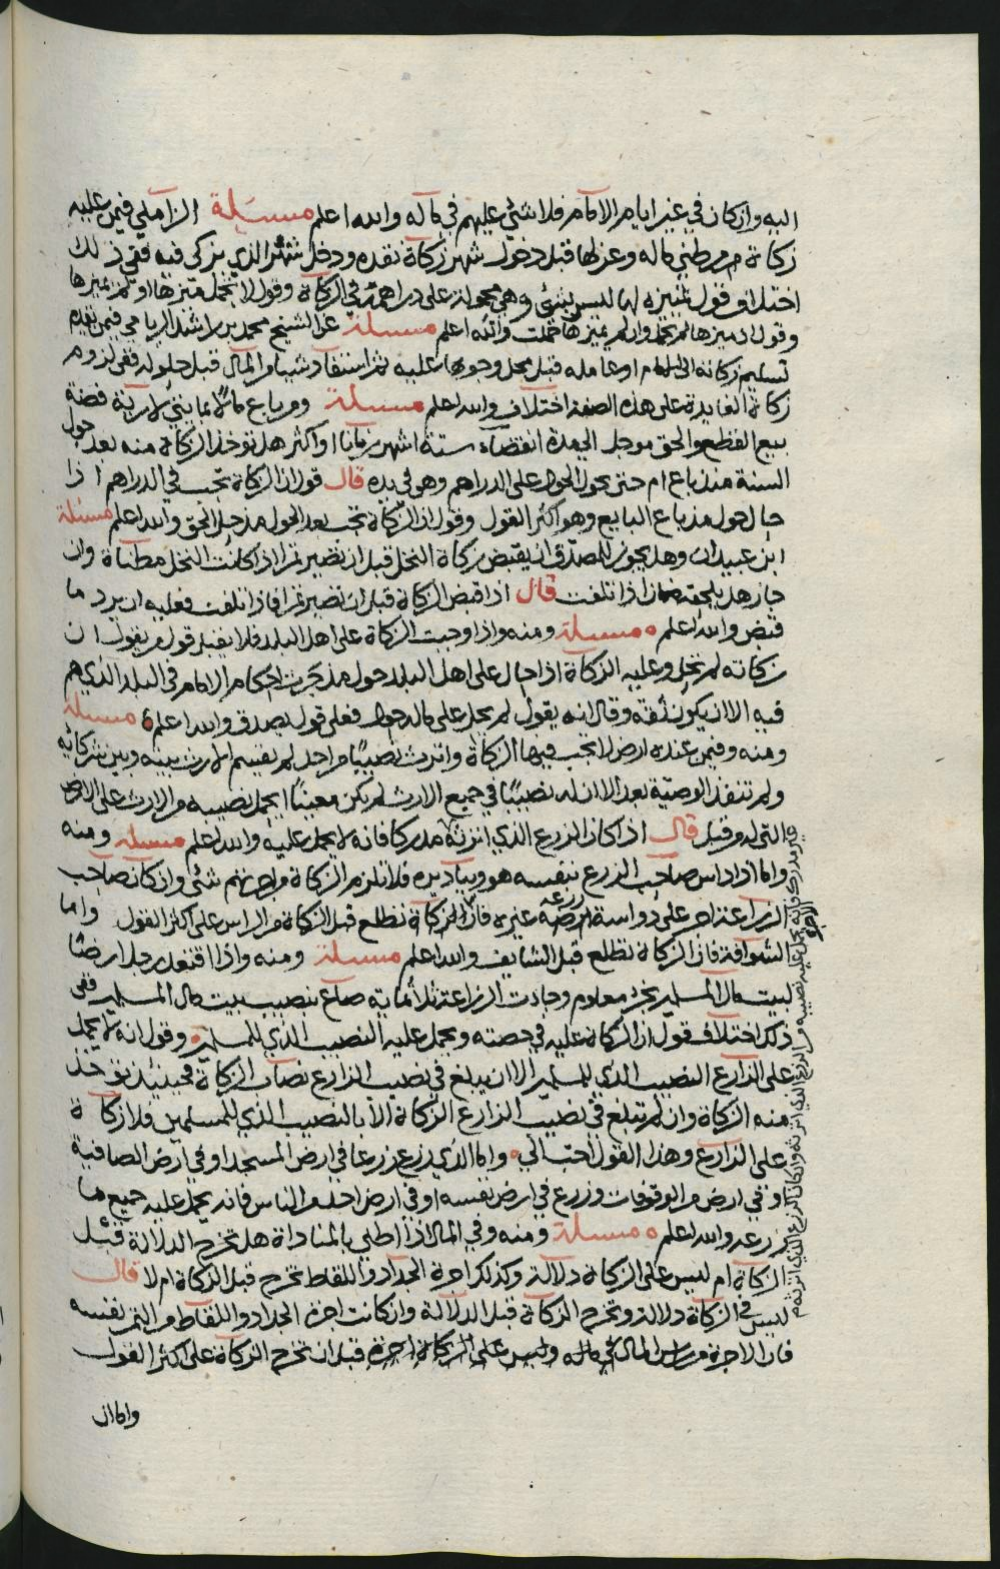 اليه وان كان في غير ايام الامام فلا شيء عليهم في ماله والله اعلم مسئلة الزاملي فيمن عليه
زكاة من مطني ماله وعزلها قبل دخول شهر زكاة نقده ودخل شهره الذي يزكى فيه ففي ذلك
اختلاف قول تمييزه لها ليس بشيء وهي محمولة على دراهمه في الزكاة وقول لا تحمل ميزها او لم يميزها
وقول ان ميزها لم تحمل وان لم يميزها حملت والله اعلم مسئلة عن الشيخ محمد بن راشد الريامي فيمن تقدم
تسليم زكاته الى الامام او عامله قبل محل وجوبها عليه ثم استفاد شيئا من المال قبل حلوله ففي لزوم
زكاة الفايدة على هذه الصفة اختلاف والله اعلم مسئلة ومن باع مالا بمايتي لارية فضة
بيع القطع والحق موجل الى مدة انقضاء ستة اشهر زمانا او اكثر هل توخذ الزكاة منه بعد حول
السنة منذ باع ام حتى يحول الحول على الدراهم وهو في يده قال قول ان الزكاة تجب في الدراهم اذا
حال حول مذ باع البايع وهو اكثر القول وقول ان الزكاة تجب بعد الحول مذ حل الحق والله اعلم مسئلة
ابن عبيدان وهل يجوز للمصدق ان يقبض زكاة النخل قبل ان تصير تمرا اذا كانت النخل مطناة وان
جاز هل يلحقه ضمان اذا تلفت قال اذا قبض الزكاة قبل ان تصير تمرا فاذا تلفت فعليه ان يرد ما
قبض والله اعلم مسئلة ومنه واذا وجبت الزكاة على اهل البلد فلا يقبل قول من يقول ان
زكاته لم تحل وعليه الزكاة اذا حال على اهل البلد حول مذ جرت احكام الامام في البلد الذي هم
فيه الا ان يكون ثقة وقال انه يقول لم يحل على ماله حول فعلى قول يصدق والله اعلم مسئلة
ومنه وفيمن عنده ارض لا تجب فيها الزكاة واترث نصيبا من احد لم تقسم الارث بينه وبين شركائه
ولم تنفذ الوصية بعد الا ان له نصيبا في جميع الارث لم يكن معينا ايحمل نصيبه من الارث على الارض
التي له من قبل قال اذا كان الزرع الذي اترثه مدركا فانه لا يحمل عليه والله اعلم مسئلة ومنه
واما اذا داس صاحب الزرع بنفسه هو وبياديره فلا تلزم الزكاة من اجرتهم شيء وان كان صاحب
الزراعة اجر على دواسة زرعه غيره فان الزكاة تطلع قبل الزكاة من الراس على اكثر القول واما
الشوافة فان الزكاة تطلع قبل الشايف والله اعلم مسئلة ومنه واذا اقتعد رجل ارضا
لبيت مال المسلمين بجزء معلوم وجاءت الزراعة ثلاثمائة صاع بنصيب بيت مال المسلمين ففي
ذلك اختلاف قول ان الزكاة عليه في حصته ويحمل عليه النصيب الذي للمسلمين وقول انه لا يحمل
على الزارع النصيب الذي للمسلمين الا ان يبلغ في نصيب الزارع نصاب الزكاة فحينئذ توخذ
منه الزكاة وان لم تبلغ في نصيب الزارع الزكاة الا بالنصيب الذي للمسلمين فلا زكاة
على الزارع وهذا القول احب الي واما الذي زرع زرعا في ارض المسجد او في ارض الصافية
او في ارض من الوقوفات وزرع في ارض نفسه او في ارض احد من الناس فانه يحمل عليه جميع ما
زرعه والله اعلم مسئلة ومنه وفي المال اذا اطني بالمناداة هل تخرج الدلالة قبل
الزكاة ام ليس على الزكاة دلالة وكذلك اجرة الجداد واللقاط تخرج قبل الزكاة ام لا قال
ليس في الزكاة دلالة وتخرج الزكاة قبل الدلالة وان كانت اجرة الجداد واللقاط من التمر نفسه
فان الاجرة من راس المال في ماله وليس على الزكاة اجرة قبل ان تخرج الزكاة على اكثر القول
واما ان